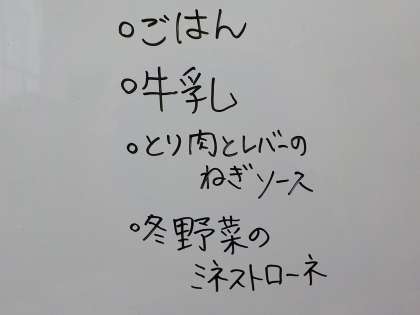 ○ごはん
○牛乳
○とり肉とレバーの
ねぎソース
○冬野菜の
ミネストローネ